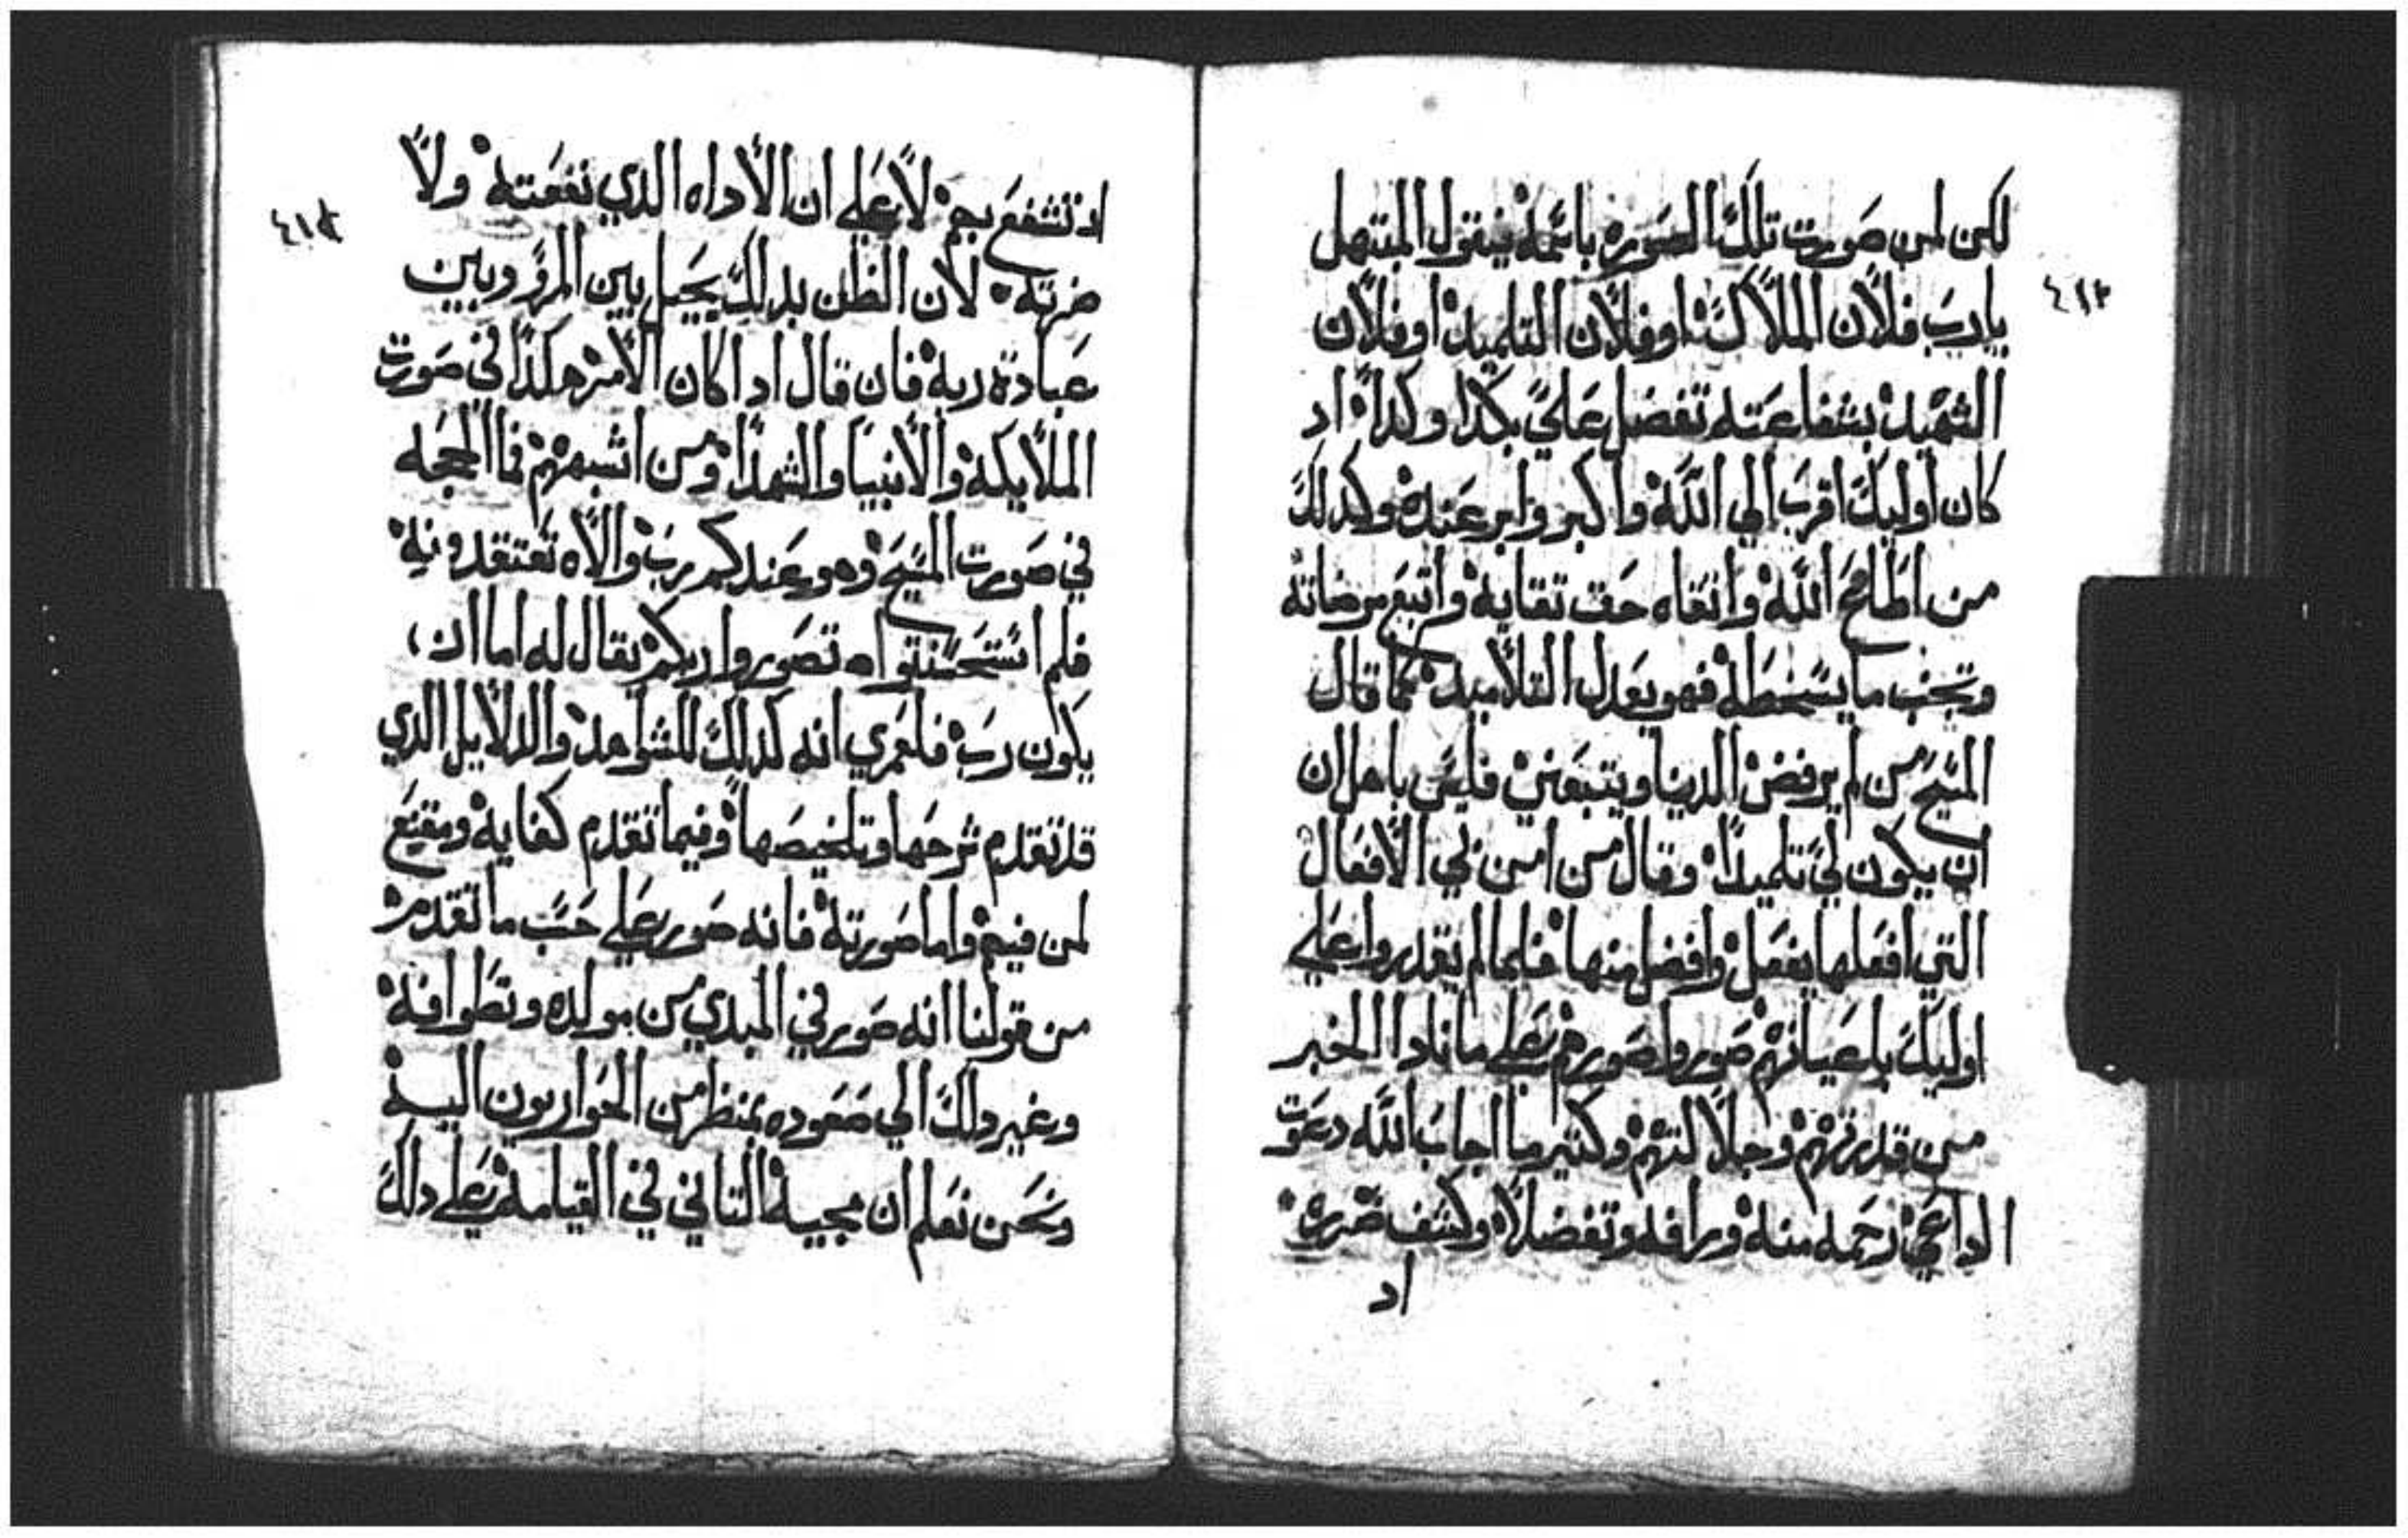 ٤١٢
لكن لمن صورت تلك الصوره باسمه فيقول المبتهل
يارب فلان الملاك او فلان التلميد او فلان
الشهيد بشفاعته تفضل علي بكدا وكدا اد
كان اوليك اقرب الي الله واكبر وابر عنده وكدلك
من اطاع الله واتقاه حق تقايه واتبع مرضاته
وتجنب ما يسخطه فهو يعدل التلاميد كما قال
المسيح من لم يرفض الدنيا ويتبعني فليس باهل ان
ان يكون لي تلميدا وقال من امن بي الافعال
التي افعلها يفعل وافضل منها فلما لم يقدروا علي
اوليك باعيانهم صوروا صورهم علي ما نادا الخبر
من قدرتهم وجلالتهم وكتير ما اجاب الله دعوت
الداعي رحمه منه ورافه وتفضلا وكشف ضره
اد
اد تشفع بهم لا علي ان الاداه الدي نفعته ولا
ضرته لان الظن بدلك يحيل بين المرو وبين
عبادة ربه فان قال ادا كان الامر هكدا في صورت
الملايكه والانبيا والشهدا ومن اشبههم فما الحجه
في صورت المسيح وهو عندكم رب والاه تعتقدونه
فلم استحسنتوا ان تصوروا ربكم يقال له اما ان
يكون رب فلعمري انه كدلك للشواهد والدلايل الدي
قد تقدم شرحها وتلخيصها وفيما تقدم كفايه ومقنع
لمن فهم واما صورته فانه صور علي حسب ما تقدم
من قولنا انه صور في المبدي من مولده وتطوافه
وغير دلك الي صعوده بمنظر من الحواريون اليه
ونحن نعلم ان مجييه التاني في القيامه علي دلك